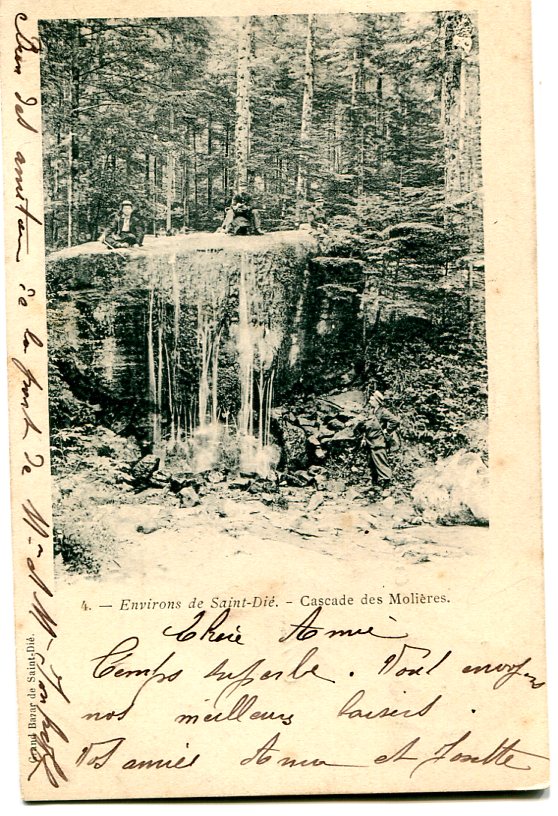 4. — Environs de Saint-Dié. - Cascade des Molières.
Chère Amie
Temps superbe. Vous envoyons
nos meilleurs baisers.
Vos amies Anna et Josette
Bien des amitiés de la part de Mr et Mme
Grand Bazar de Saint-Dié.